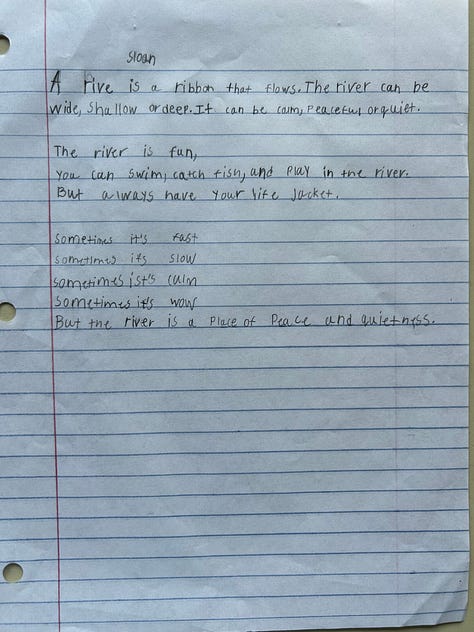 Sloan
A rive is a ribbon that flows. The river can be
wide, shallow or deep. It can be cam, peaceful or quiet.
The river is fun,
you can swim, catch fish, and play in the river.
But always have your life jacket.
sometimes it's fast
sometimes its slow
sometimes ist's calm
sometimes it's wow
But the river is a place of peace and quietness.